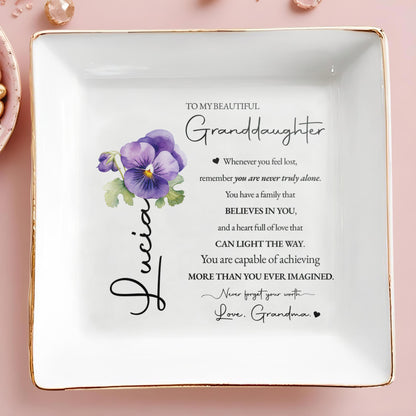 TO MY BEAUTIFUL
Granddaughter
Whenever you feel lost,
remember you are never truly alone.
You have a family that
BELIEVES IN YOU,
and a heart full of love that
CAN LIGHT THE WAY.
You are capable of achieving
MORE THAN YOU EVER IMAGINED.
Never forget your worth
Love, Grandma.
Lucia